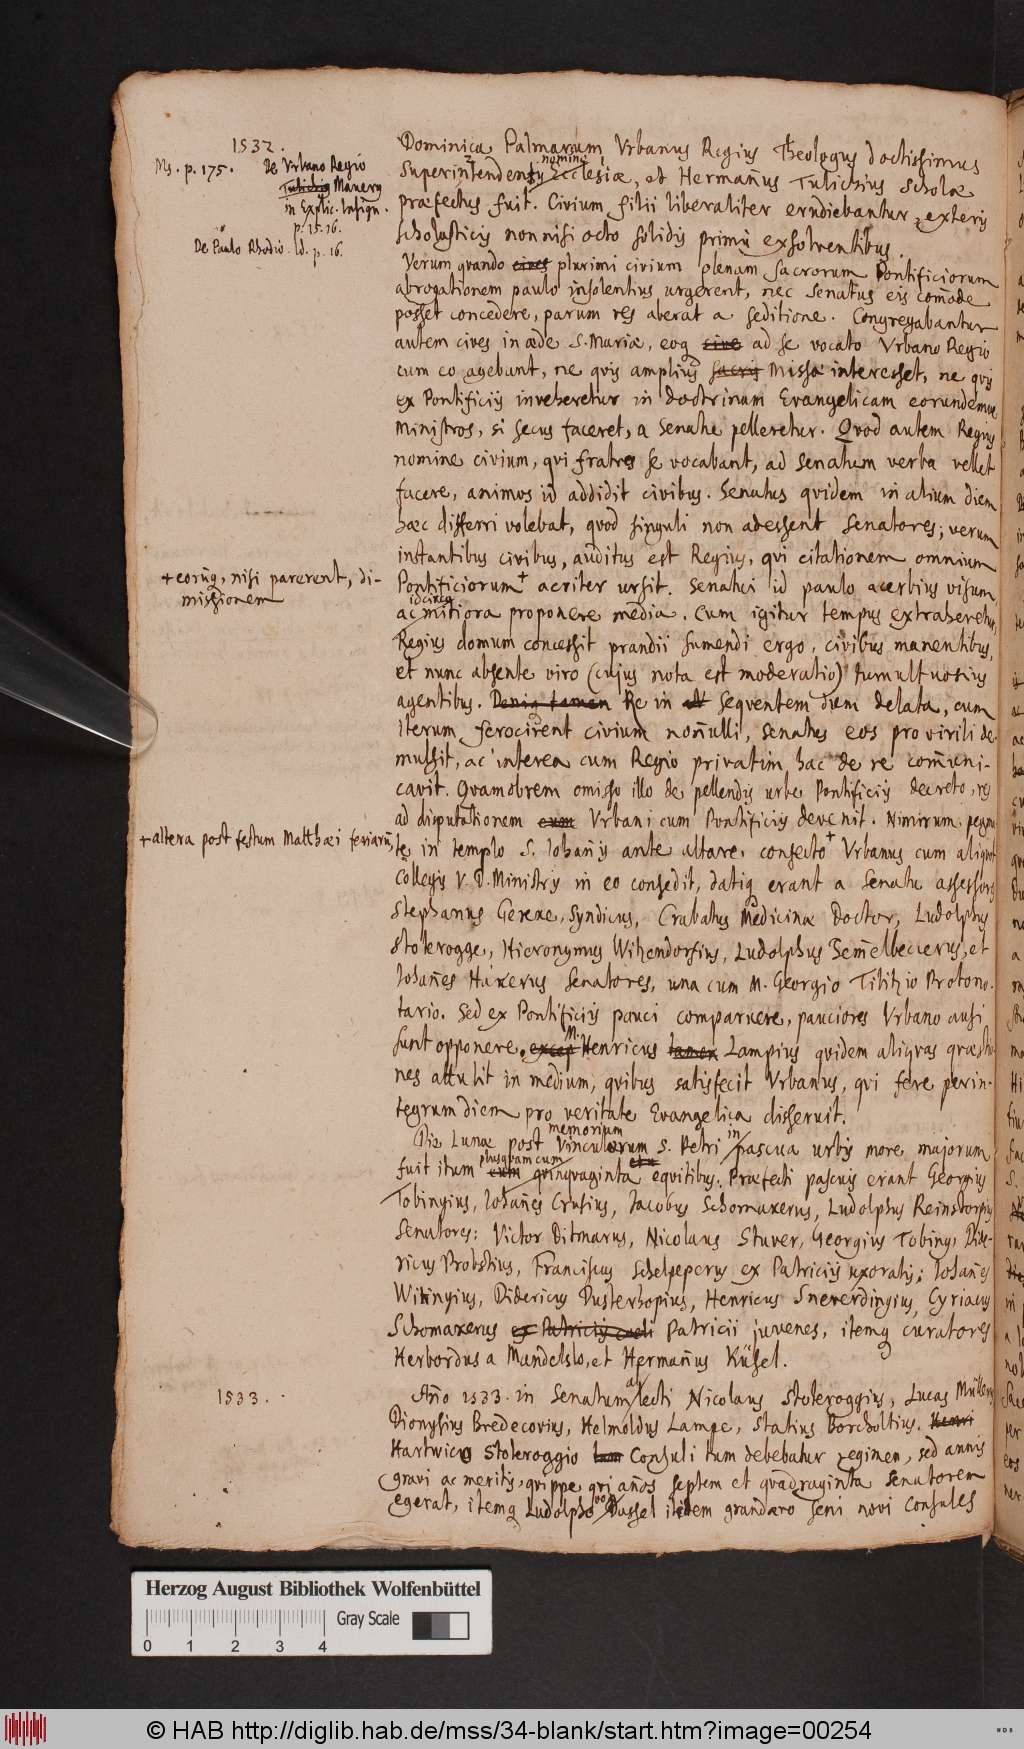 1532.
Ms. p. 175. de Urbano Regio
Tulichio Mavery
in Explic. Insign.
p. 15. 16.
De Paulo Rhodio. Id. p. 16.
Dominica Palmarum, Urbanus Regius Theologus doctissimus
nomine
Superintendentis Ecclesiæ, et Hermañus Tulichius Scholæ
præfectus fuit. Civium filii liberaliter erudiebantur, exteris
scholasticis non nisi octo solidis primū exsolventibus.
Verum quando cives plurimi civium plenam sacrorum Pontificiorum
abrogationem paulo insolentius urgerent, nec Senatus eis com̄ode
posset concedere, parum res aberat a seditione. Congregabantur
autem cives in æde S. Mariæ, eoq sive ad se vocato Urbano Regio
cum eo agebant, ne quis amplius sacris Missæ interesset, ne quis
ex Pontificiis inveheretur in doctrinam Evangelicam eorundemue
Ministros, si secus faceret, a Senatu pelleretur. Quod autem Regius
nomine civium, qui fratres se vocabant, ad senatum verba vellet
facere, animos id addidit civibus. Senatus quidem in alium diem
hæc differri volebat, quod singuli non adessent Senatores; verum
instantibus civibus, auditus est Regius, qui citationem omnium
+ eorūq, nisi parerent, di-
missionem
Pontificiorum + acriter ursit. Senatui id paulo acerbius visum,
idcirco
ac mitiora proponere media. Cum igitur tempus extraheretur,
Regius domum concessit prandii sumendi ergo, civibus manentibus,
et nunc absente viro (cujus nota est moderatio) tumultuosius
agentibus. Deniq tamen Re in alt sequentem diem delata, cum
iterum ferocirent civium non̄ulli, Senatus eos pro virili de-
mulsit, ac interea cum Regio privatim hac de re com̄uni-
cavit. Quamobrem omisso illo de pellendis urbe Pontificiis decreto, res
ad disputationem cum Urbani cum Pontificiis devenit. Nimirum pegma-
+ altera post festum Matthæi feriarū,
te in templo S. Iohañis ante altare, confecto + Urbanus cum aliquot
Collegis V. D. Ministris in eo consedit, datiq erant a Senatu assessores
Stephanus Gerexe, Syndicus, Crabatus Medicinæ Doctor, Ludolphus
Stoterogge, Hieronymus Witzendorfius, Ludolphus Sem̄elbeccerus, et
Iohañes Haxerus Senatores, una cum M. Georgio Tilitzio Protono-
tario. Sed ex Pontificiis pauci comparuere, pauciores Urbano ausi
M.
sunt opponere. excep Henricus tamen Lampius quidem aliquas quæstio-
nes attulit in medium, quibus satisfecit Urbanus, qui fere perin-
tegrum diem pro veritate Evangelica disseruit.
memoriam in
Die Lunæ post Vinculorum S. Petri pascua urbis more majorum
plusquam cum
fuit itum cum quinquaginta equitibus. Præfecti pascuis erant Georgius
Tobingius, Iohañes Crusius, Jacobus Schomakerus, Ludolphus Reinstorpius
Senatores: Victor Ditmarus, Nicolaus Stuver, Georgius Tobing, Dide-
ricus Probstius, Franciscus Schelpeperus ex Patriciis uxoratis; Iohañes
Witingius, Didericus Dusterhopius, Henricus Sneverdingius, Cyriacus
Schomakerus ex Patriciis cæli Patricii juvenes, itemq curatores
Herbordus a Mandelslo, et Hermañus Küsel.
1533.
Año 1533. in Senatum lecti Nicolaus Stoteroggius, Lucas Müller,
Dionysius Bredecovius, Helmoldus Lampe, Statius Borcholtius. Henri
Hartwico Stoteroggio tum Consuli tum debebatur regimen, sed annis
gravi ac meritis, quippe qui años septem et quadraginta Senatorem
von
egerat, itemq Ludolpho Dassel itidem grandævo seni novi Consules
Herzog August Bibliothek Wolfenbüttel
0 1 2 3 4
Gray Scale
© HAB http://diglib.hab.de/mss/34-blank/start.htm?image=00254